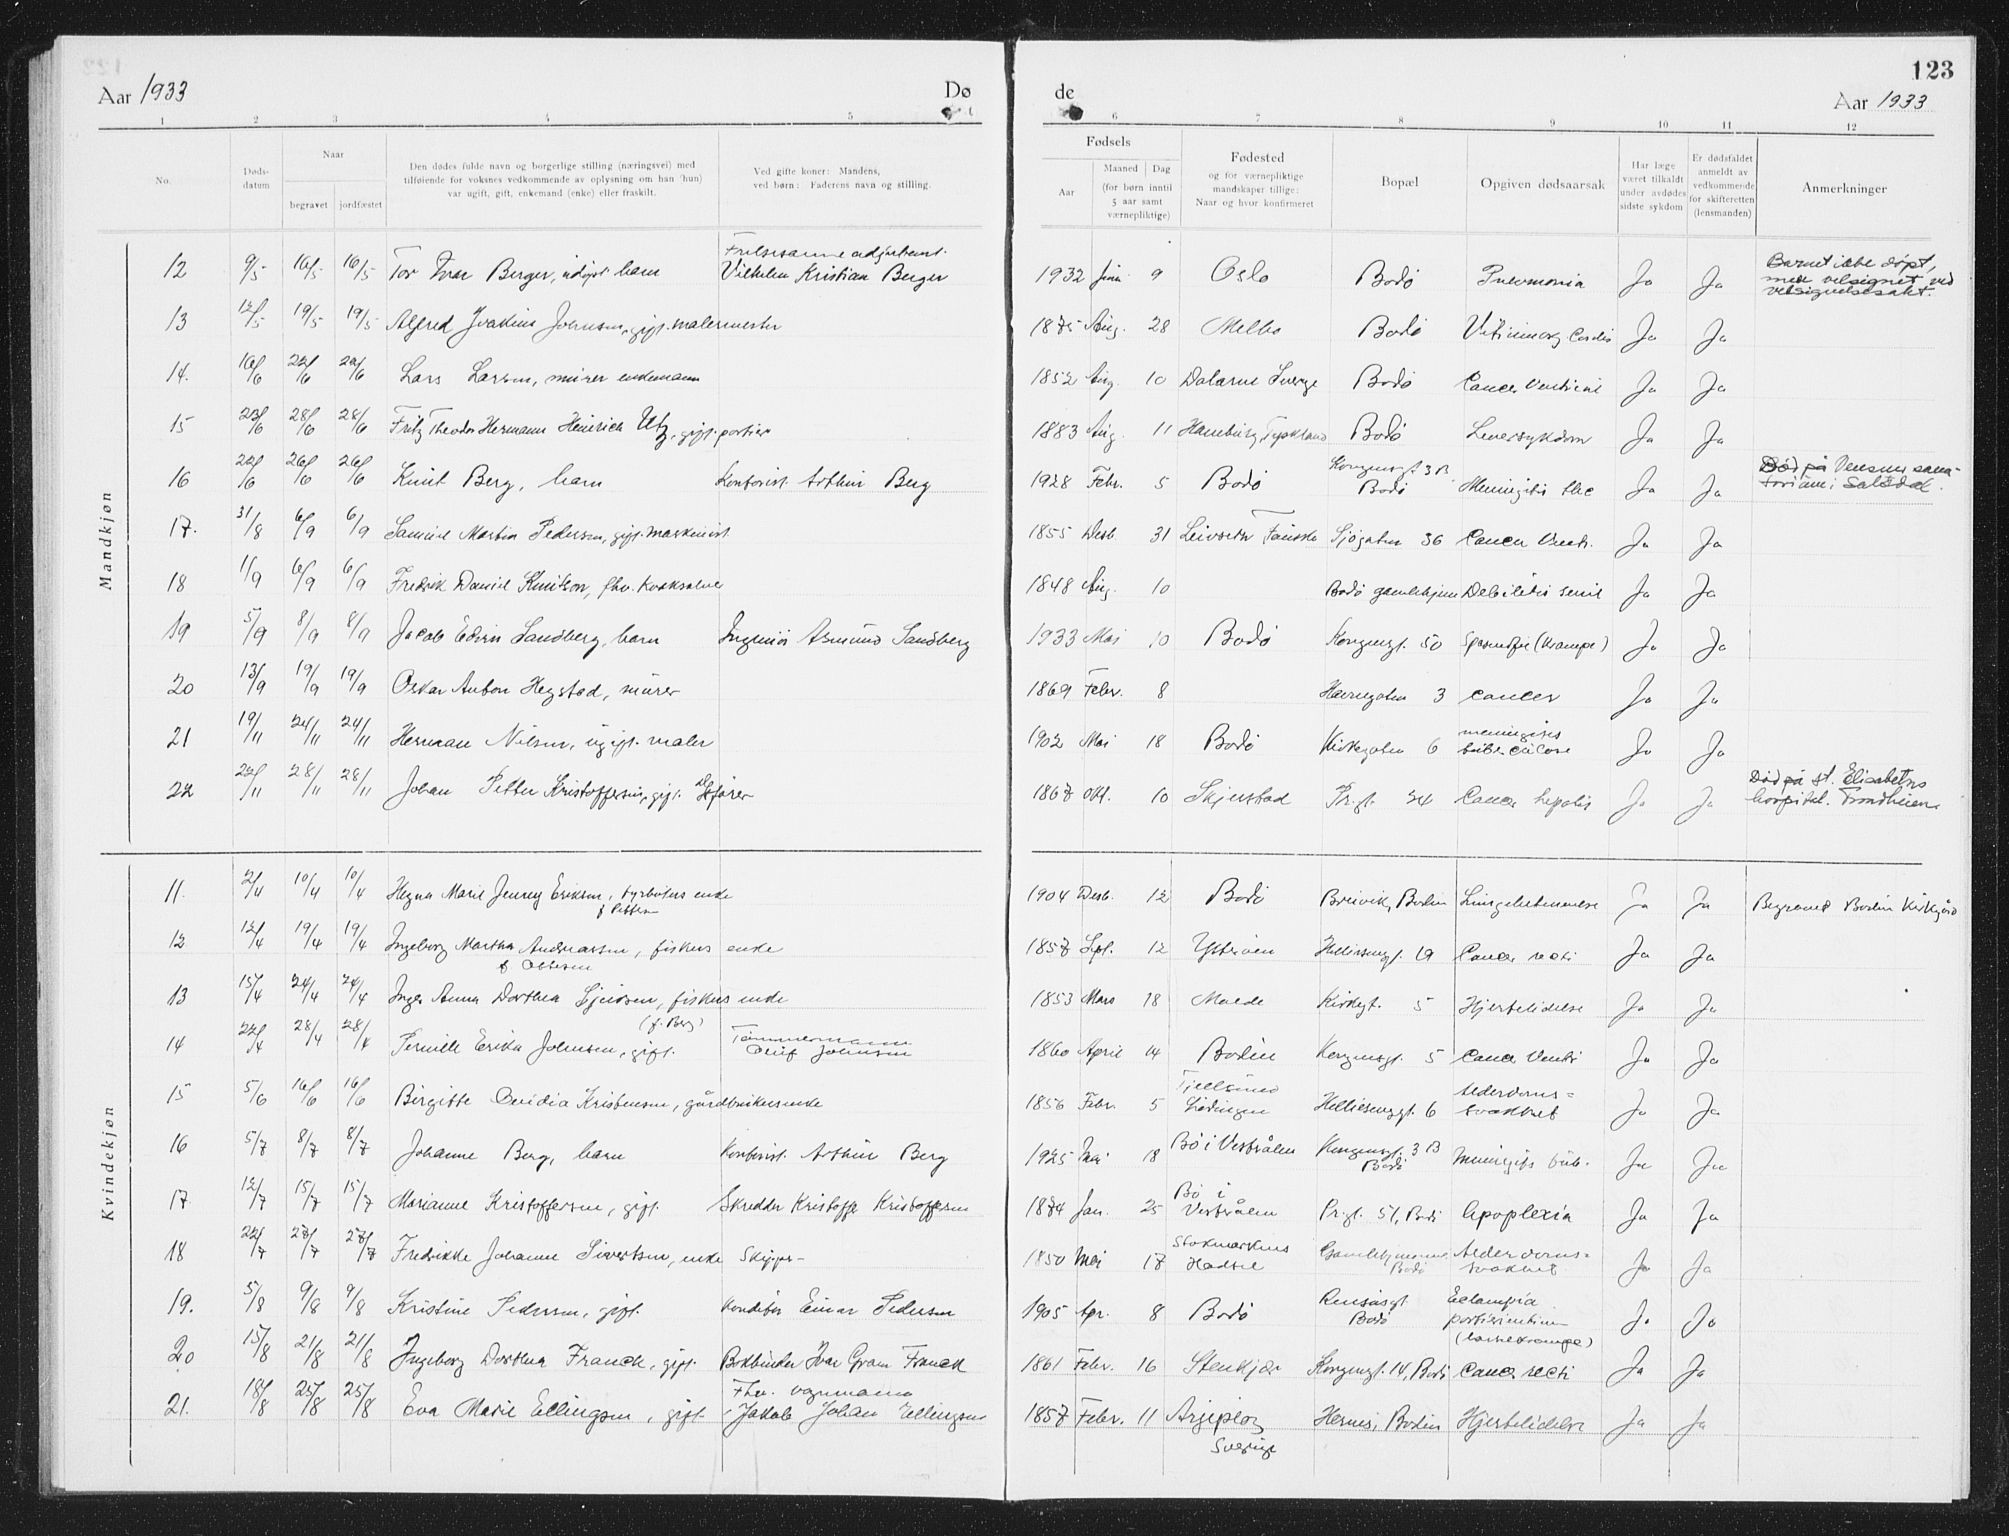 123
Aar 1933 Dø de Aar 1933
1 2 3 4 5 6 7 8 9 10 11 12
No. Døds-datum Naar begravet jordfæstet
Den dødes fulde navn og borgerlige stilling (næringsvei) med tilføiende for voksnes vedkommende av oplysning om han (hun) var ugift, gift, enkemand (enke) eller fraskilt.
Ved gifte koner: Mandens, ved børn: Faderens navn og stilling.
Fødsels Aar Maaned Dag (for børn inntil 5 aar samt værnepliktige)
Fødested og for værnepliktige mandskaper tillige: Naar og hvor konfirmeret
Bopæl
Opgiven dødsaarsak
Har læge været tilkaldt under avdødes sidste sykdom
Er dødsfaldet anmeldt av vedkommende for skifteretten (lensmanden)
Anmerkninger
Mandkjøn
12 9/5 16/5 16/5 Tor Ivar Berger, adopt. barn Frelsesarmeadjutant Vilhelm Kristian Berger 1932 Juni 9 Oslo Bodø Pneumonia Ja Ja Barnet ikke døpt, men velsignet ved velsignelsesakt.
13 12/5 19/5 19/5 Alfred Joakim Johnsen, gift. malermester 1875 Aug. 28 Melbo Bodø Vitium org. Cordis Ja Ja
14. 16/6 22/6 22/6 Lars Larsen, murer enkemann 1852 Aug. 10 Dalarne Sverge Bodø Cancer Ventricul Ja Ja
15 23/6 28/6 28/6 Fritz Theodor Hermann Heinrich Utz, gift. portier 1883 Aug. 11 Hamburg, Tyskland Bodø Leversykdom Ja Ja
16 22/6 26/6 26/6 Knut Berg, barn Kontorist Arthur Berg 1928 Febr. 5 Bodø Kongensgt 3 B. Bodø Meningitis tbc Ja Ja Død på Vensmo sanatorium i Saltdal.
17. 31/8 6/9 6/9 Samuel Martin Pedersen, gift. maskinist 1855 Desb. 31 Leivseth Fauske Sjøgaten 36 Cancer Ventr. Ja Ja
18 1/9 6/9 6/9 Fredrik Daniel Knutson, fhv. 1848 Aug. 10 Bodø gamlehjem Debilitas senil Ja Ja
19 5/9 8/9 8/9 Jacob Edvin Sandberg, barn Ingeniør Asmund Sandberg 1933 Mai 10 Bodø Kongensgt. 50 (Krampe) Ja Ja
20 13/9 19/9 19/9 Oskar Anton Hegstad, murer 1869 Febr. 8 Havnegaten 3 Cancer Ja Ja
21 19/11 24/11 24/11 Herman Nilsen, ugift. maler 1902 Mai 18 Bodø Kirkegaten 6 meningitis tuberculose Ja Ja
22 22/11 28/11 28/11 Johan Petter Kristoffersen, gift. 1867 Okt. 10 Skjerstad Pr.gt. 24 Cancer hepatis Ja Ja Død på St. Elisabeths hospital. Trondheim
Kvindekjøn
11. 2/4 10/4 10/4 Hegna Marie Jenny Eriksen, fyrbøters enke f Pettersen 1904 Desb. 12 Bodø Breivik, Bodin Lungebetennelse Ja Ja Begravet Bodin Kirkegård
12 12/4 19/4 19/4 Ingeborg Martha Andreassen, fiskers enke f Ottesen 1857 Spt. 12 Ytterøen Hellesensgt. 19 Cancer recti Ja Ja
13 15/4 24/4 24/4 Inger Anna Dorthea Sjursen, fiskers enke (f. Berg) 1853 Mars 18 Molde Kirkegt. 5 Hjertelidelse Ja Ja
14 22/4 28/4 28/4 Pernille Erika Johnsen, gift. Tømmermann Oluf Johnsen 1860 April 14 Bodin Kongensgt. 5 Cancer Ventr. Ja Ja
15 5/6 16/6 16/6 Birgitte Ovidia Kristensen, gårdbrukersenke 1856 Febr. 5 Tjellsund Lødingen Hellesensgt. 6 Alderdoms=svakhet Ja Ja
16 5/7 8/7 8/7 Johanne Berg, barn Kontorist. Arthur Berg 1925 Mai 18 Bø i Vesterålen Kongensgt. 3 B Bodø Meningitis tub. Ja Ja
17 12/7 15/7 15/7 Marianne Kristoffersen, gift. Skredder Kristoffer Kristoffersen 1874 Jan. 25 Bø i Vesterålen Pr.gt. 51, Bodø Apoplexia Ja Ja
18 22/7 27/7 27/7 Fredrikke Johanne Sivertsen, enke Skipper- 1850 Mai 17 Stokmarknes Hadsel Gamlehjemmet, Bodø Alderdoms=svakhet Ja Ja
19. 5/8 9/8 9/8 Kristine Pedersen, gift. Konditor Einar Pedersen 1905 Apr. 8 Bodø Rensåsgt Bodø Eclampsia parturientium (barselkrampe) Ja Ja
20 15/8 21/8 21/8 Ingeborg Dorthea Franck, gift. Bokbinder Ivar Gram Franck 1861 Febr. 16 Stenkjær Kongensgt. 14, Bodø Cancer recti Ja Ja
21. 18/8 25/8 25/8 Eva Marie Ellingsen, gift. Fhv. vognmann Jakob Johan Ellingsen 1857 Febr. 11 Arjeplog Sverige Hernes, Bodin Hjertelidelse Ja Ja